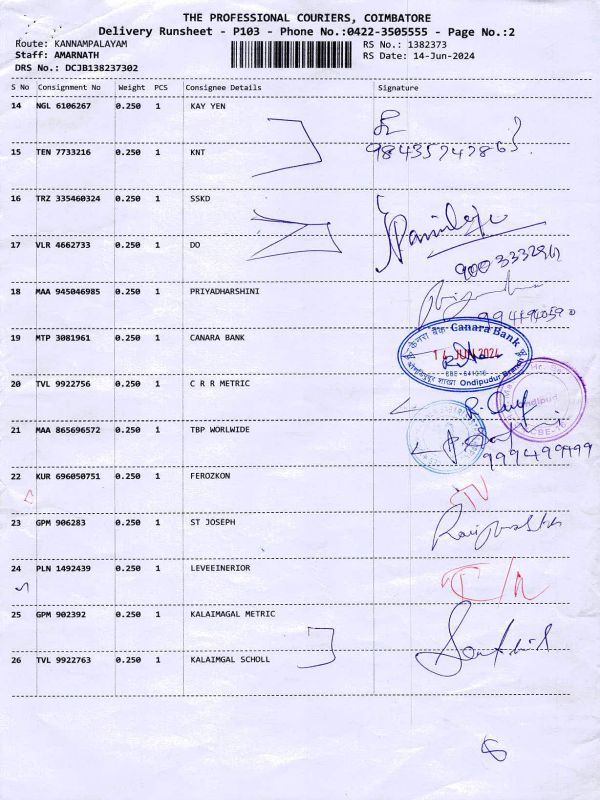 THE PROFESSIONAL COURIERS, COIMBATORE
Delivery Runsheet - P103 - Phone No.:0422-3505555 - Page No.:2
Route: KANNAMPALAYAM RS No.: 1382373
Staff: AMARNATH RS Date: 14-Jun-2024
DRS No.: DCJB138237302
S No Consignment No Weight PCS Consignee Details Signature
14 NGL 6106267 0.250 1 KAY YEN
15 TEN 7733216 0.250 1 KNT
16 TRZ 335460324 0.250 1 SSKD
17 VLR 4662733 0.250 1 DO
9003332962
18 MAA 945046985 0.250 1 PRIYADHARSHINI
19 MTP 3081961 0.250 1 CANARA BANK
केनरा बैंक Canara Bank
14 JUN 2024
Ondipudur Branch
20 TVL 9922756 0.250 1 C R R METRIC
21 MAA 865696572 0.250 1 TBP WORLWIDE
9994994199
22 KUR 696050751 0.250 1 FEROZKON
23 GPM 906283 0.250 1 ST JOSEPH
24 PLN 1492439 0.250 1 LEVEEINERIOR
25 GPM 902392 0.250 1 KALAIMAGAL METRIC
26 TVL 9922763 0.250 1 KALAIMGAL SCHOLL